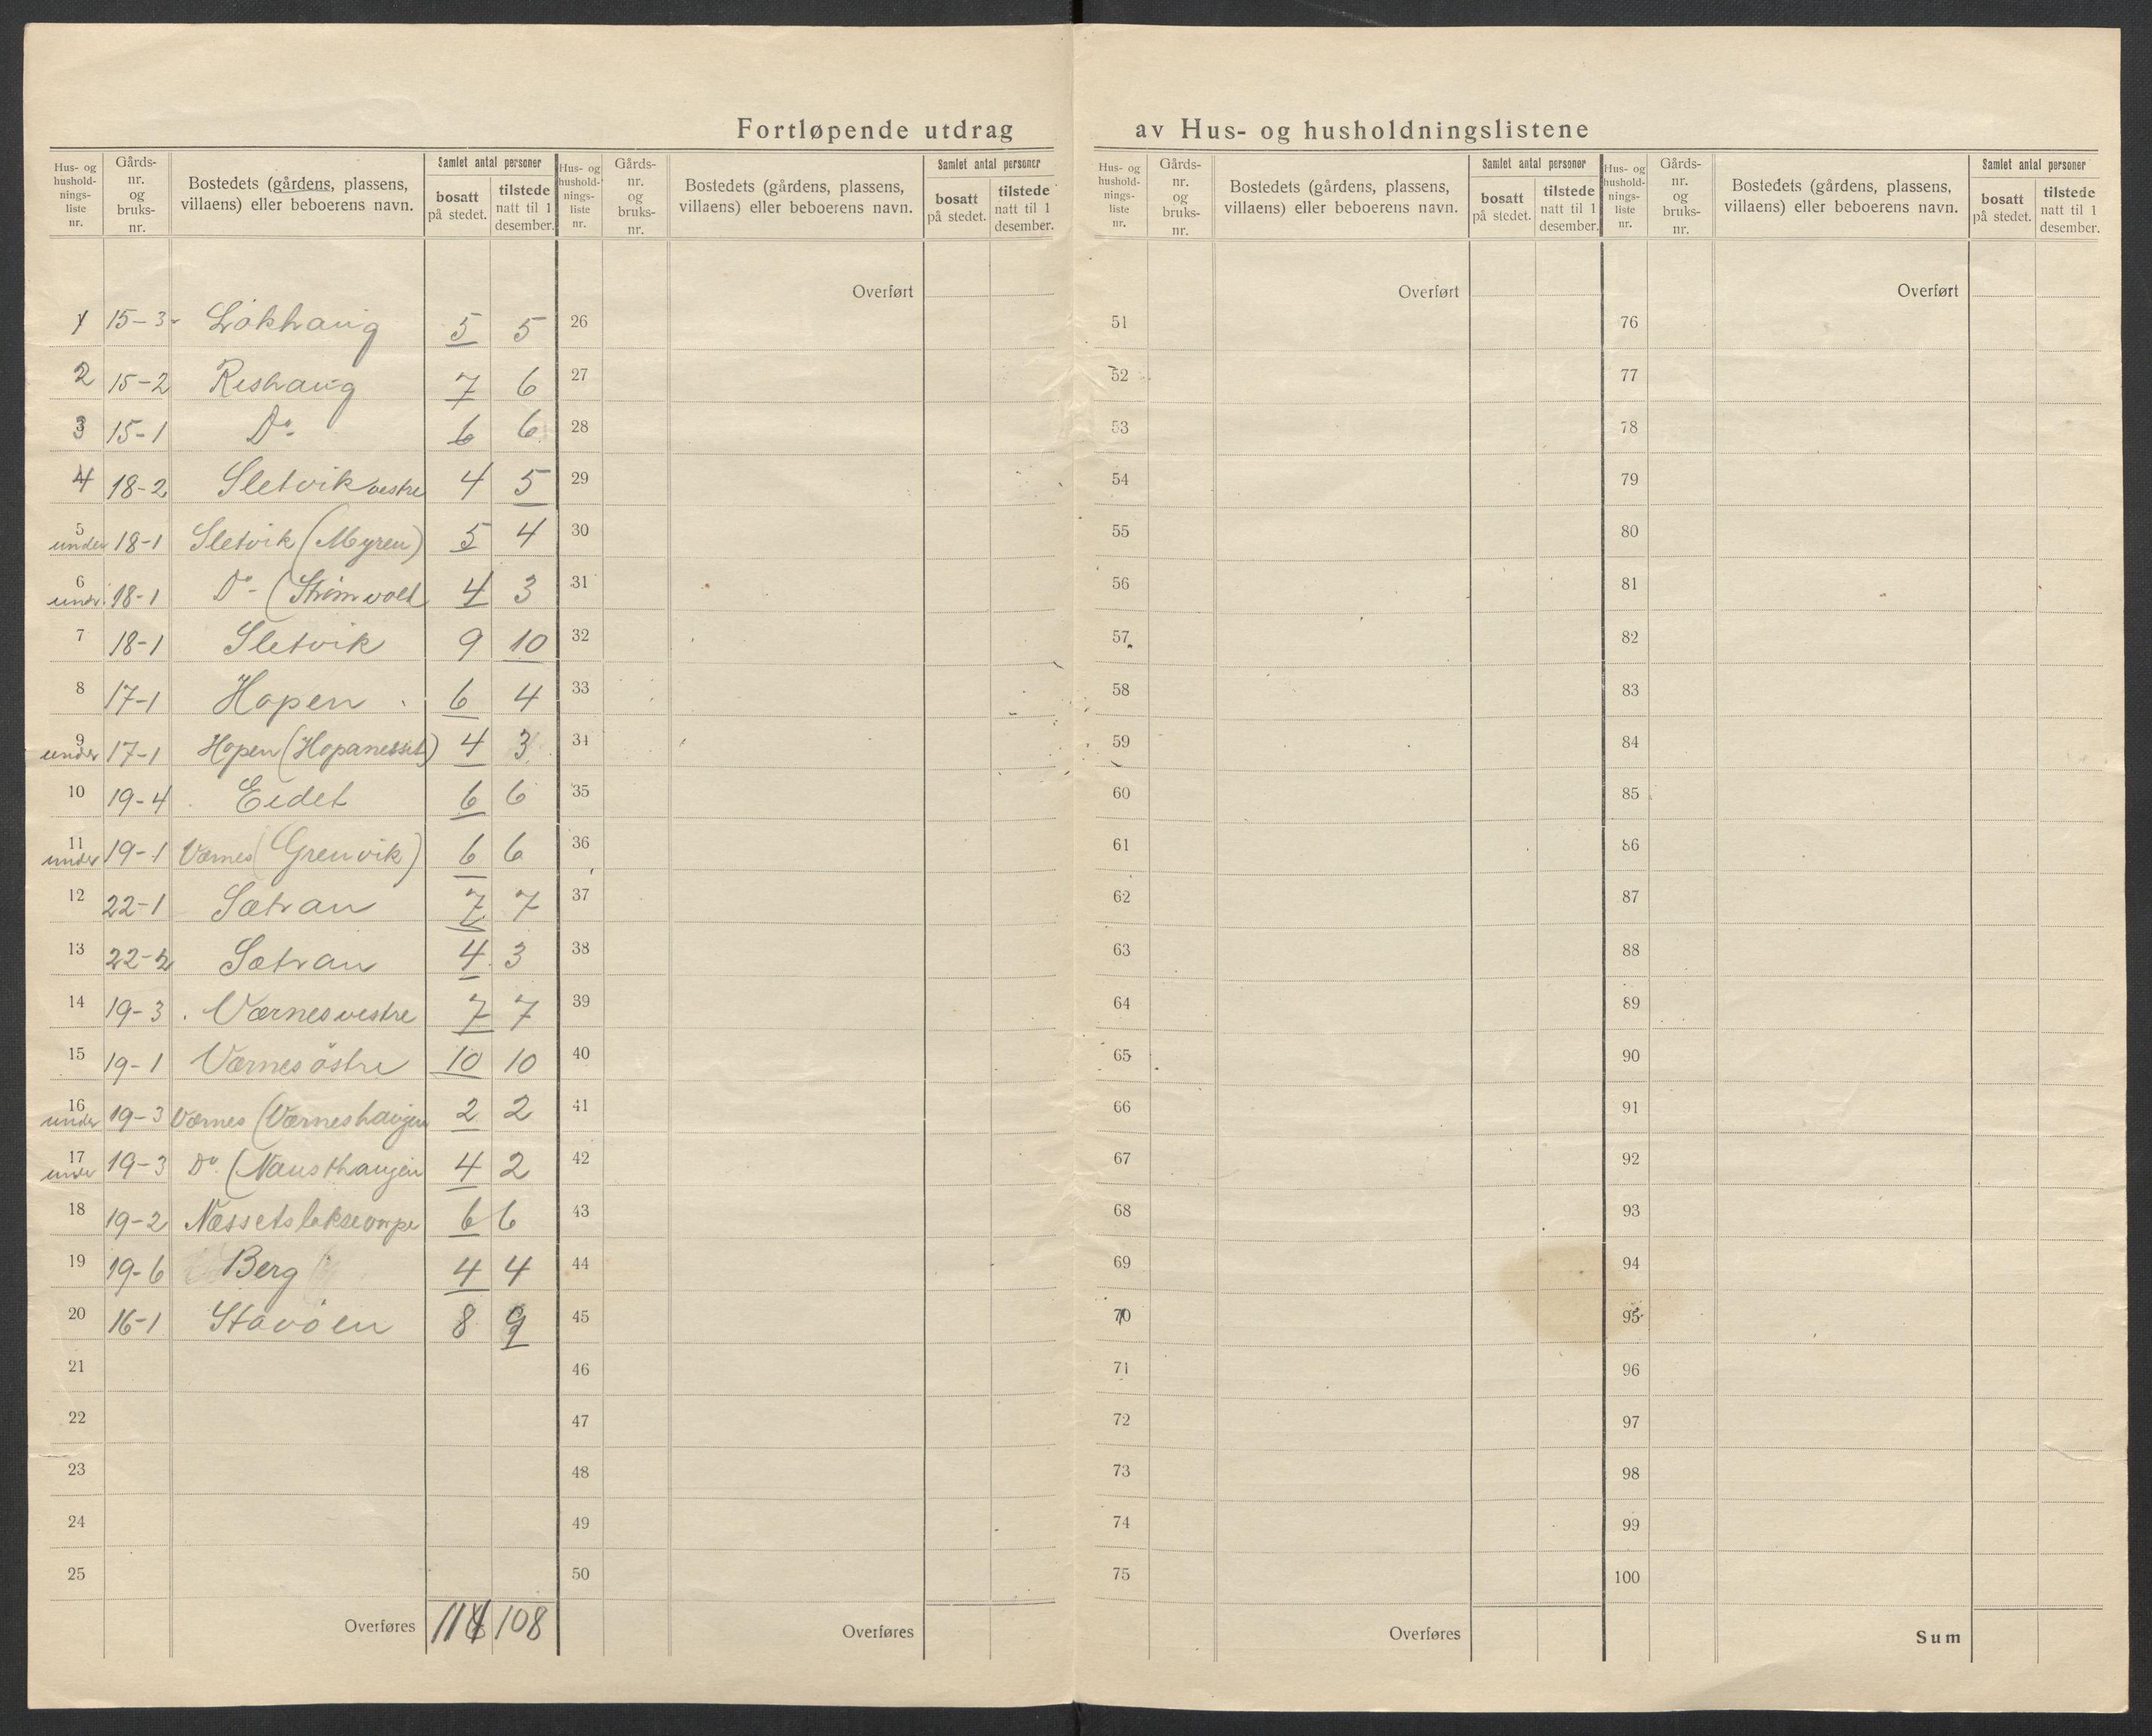 Fortløpende utdrag av Hus- og husholdningslistene
Hus- og hushold- nings- liste nr. Gårds- nr. og bruks- nr. Bostedets (gårdens, plassens, villaens) eller beboerens navn. Samlet antal personer bosatt på stedet. tilstede natt til 1 desember.
Hus- og hushold- nings- liste nr. Gårds- nr. og bruks- nr. Bostedets (gårdens, plassens, villaens) eller beboerens navn. Samlet antal personer bosatt på stedet. tilstede natt til 1 desember.
Hus- og hushold- nings- liste nr. Gårds- nr. og bruks- nr. Bostedets (gårdens, plassens, villaens) eller beboerens navn. Samlet antal personer bosatt på stedet. tilstede natt til 1 desember.
Hus- og hushold- nings- liste nr. Gårds- nr. og bruks- nr. Bostedets (gårdens, plassens, villaens) eller beboerens navn. Samlet antal personer bosatt på stedet. tilstede natt til 1 desember.
1 15-3 Lökhaug 5 5
2 15-2 Reshaug 7 6
3 15-1 Do- 6 6
4 18-2 Sletvik vestre 4 5
5 under 18-1 Sletvik (Myren) 5 4
6 under 18-1 Do- (Strömvold 4 3
7 18-1 Sletvik 9 10
8 17-1 Hopen 6 4
9 under 17-1 Hopen (Hopanesset) 4 3
10 19-4 Eidet 6 6
11 under 19-1 Værnes (Grenvik) 6 6
12 22-1 Sætran 7 7
13 22-2 Sætran 4 3
14 19-3 Værnes vestre 7 7
15 19-1 Værnes östre 10 10
16 under 19-3 Værnes (Værneshaugen 2 2
17 under 19-3 Do (Nausthaugen 4 2
18 19-2 Næssets 6 6
19 19-6 Berg 4 4
20 16-1 Stavöen 8 9
21
22
23
24
25
Overføres 114 108
Overført
26
27
28
29
30
31
32
33
34
35
36
37
38
39
40
41
42
43
44
45
46
47
48
49
50
Overføres
Overført
51
52
53
54
55
56
57
58
59
60
61
62
63
64
65
66
67
68
69
70
71
72
73
74
75
Overføres
Overført
76
77
78
79
80
81
82
83
84
85
86
87
88
89
90
91
92
93
94
95
96
97
98
99
100
Sum